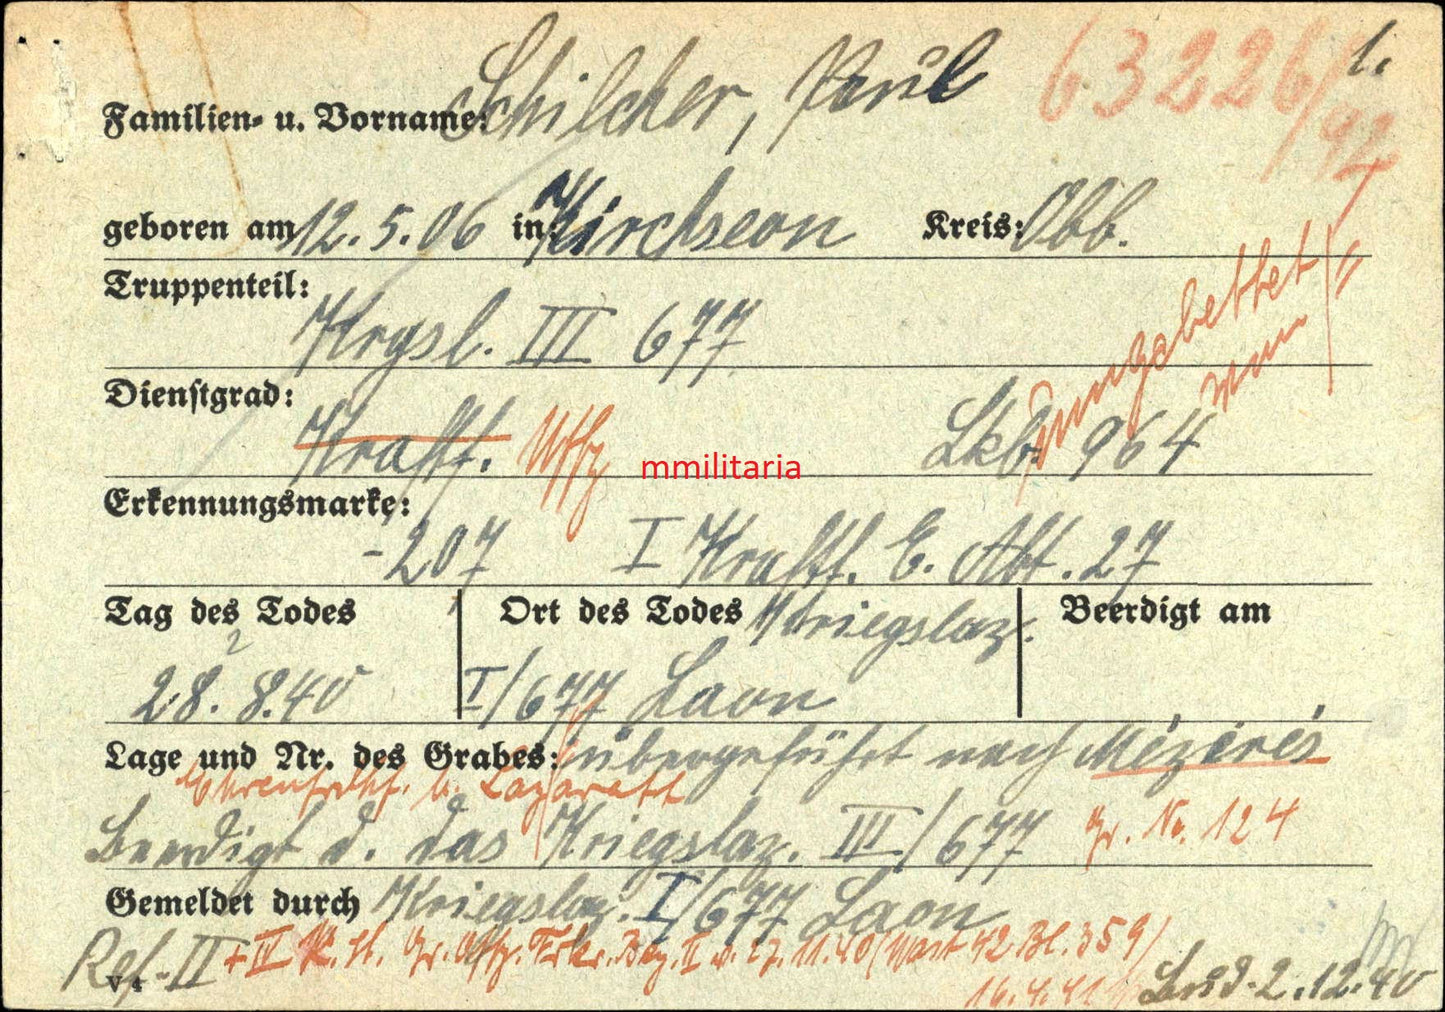 Familien- u. Vorname: Schilcher, Paul 63226/42 1.
geboren am 12.5.06 in: Kirchseon Kreis: Obb.
Truppenteil:
Krgsl. III 677
umgebettet
Dienstgrad:
Kraftf. Uffz Lkb. 964
mmilitaria
Erkennungsmarke:
-207 I Kraftf. E. Abt. 27
Tag des Todes Ort des Todes Kriegslaz. Beerdigt am
28. 8.40 I/677 Laon
Lage und Nr. des Grabes: übergeführt nach Mézières
Ehrenfrdhf. b. Lazarett
Beerdigt d. das Kriegslaz. III/677 Gr. Nr. 124
Gemeldet durch Kriegslaz. I/677 Laon
Ref. II + IV Gr. Offz. II v. 27.11.40 (Wast 42 Bl. 359)
V 4 16.4.41 2.12.40